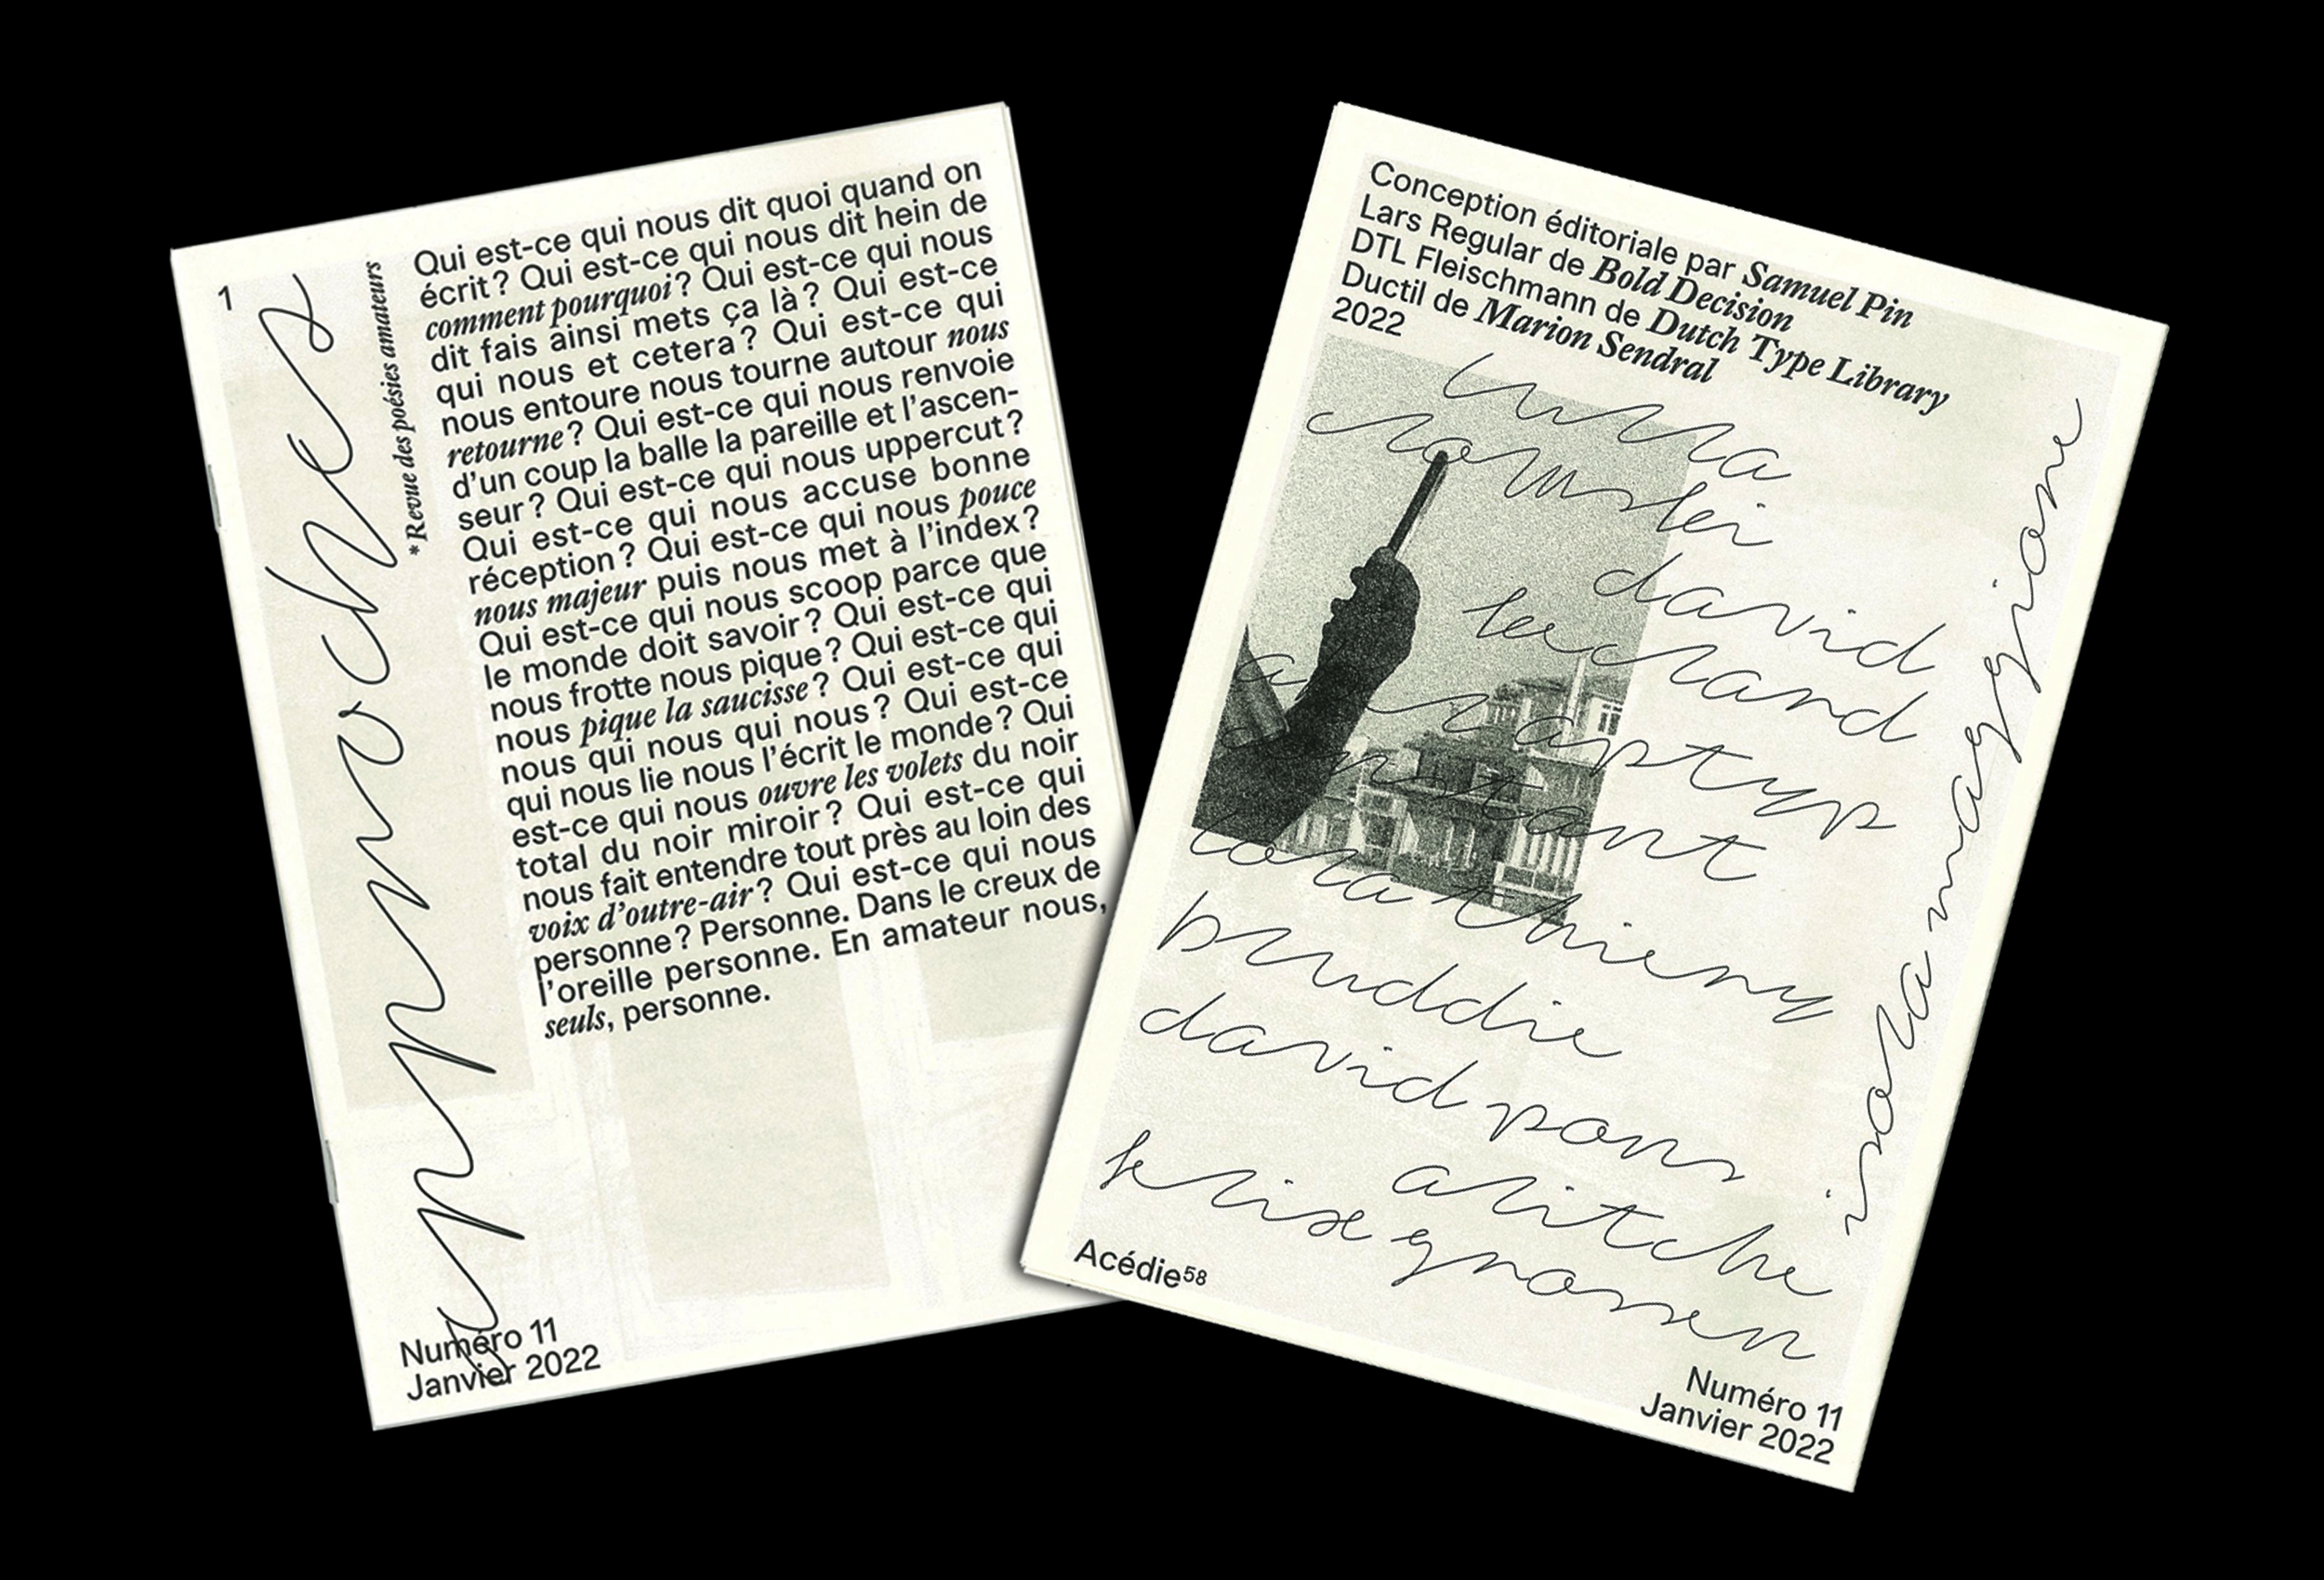 1
approches
*Revue des poésies amateurs
Qui est-ce qui nous dit quoi quand on
écrit ? Qui est-ce qui nous dit hein de
comment pourquoi ? Qui est-ce qui nous
dit fais ainsi mets ça là ? Qui est-ce
qui nous et cetera ? Qui est-ce qui
nous entoure nous tourne autour nous
retourne ? Qui est-ce qui nous renvoie
d’un coup la balle la pareille et l’ascen-
seur ? Qui est-ce qui nous uppercut ?
Qui est-ce qui nous accuse bonne
réception ? Qui est-ce qui nous pouce
nous majeur puis nous met à l’index ?
Qui est-ce qui nous scoop parce que
le monde doit savoir ? Qui est-ce qui
nous frotte nous pique ? Qui est-ce qui
nous pique la saucisse ? Qui est-ce qui
nous qui nous qui nous ? Qui est-ce
qui nous lie nous l’écrit le monde ? Qui
est-ce qui nous ouvre les volets du noir
total du noir miroir ? Qui est-ce qui
nous fait entendre tout près au loin des
voix d’outre-air ? Qui est-ce qui nous
personne ? Personne. Dans le creux de
l’oreille personne. En amateur nous,
seuls, personne.
Numéro 11
Janvier 2022
Conception éditoriale par Samuel Pin
Lars Regular de Bold Decision
DTL Fleischmann de Dutch Type Library
Ductil de Marion Sendral
2022
david
david pons
Acédie58
Numéro 11
Janvier 2022